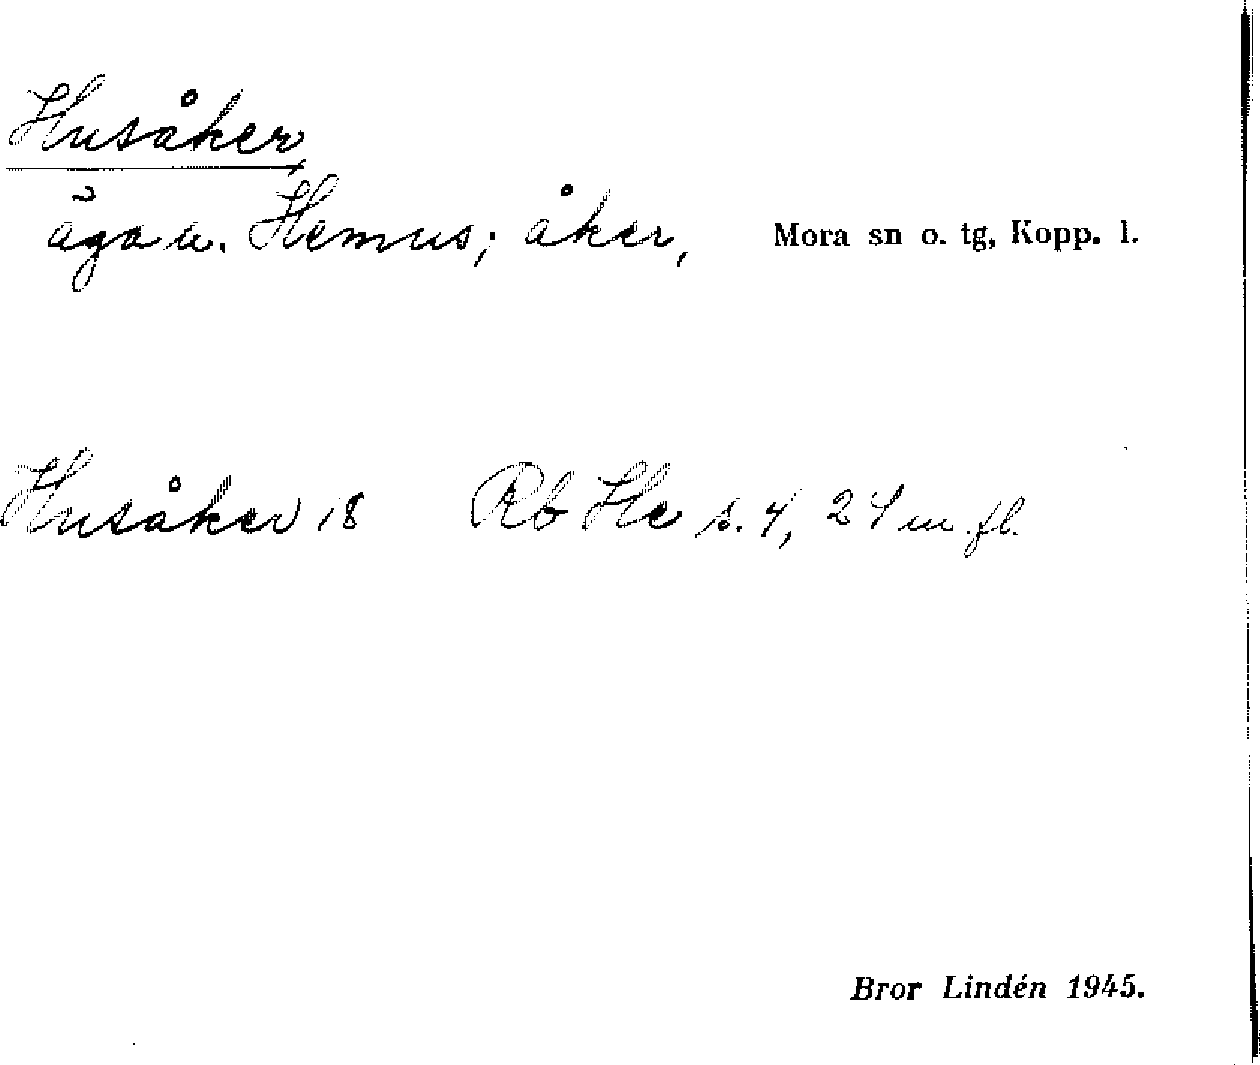 Husåker,
Hemus; åker, Mora sn o. tg, Kopp. l.
Husåker 18 Rb He s. 4, 24 m. fl.
Bror Lindén 1945.